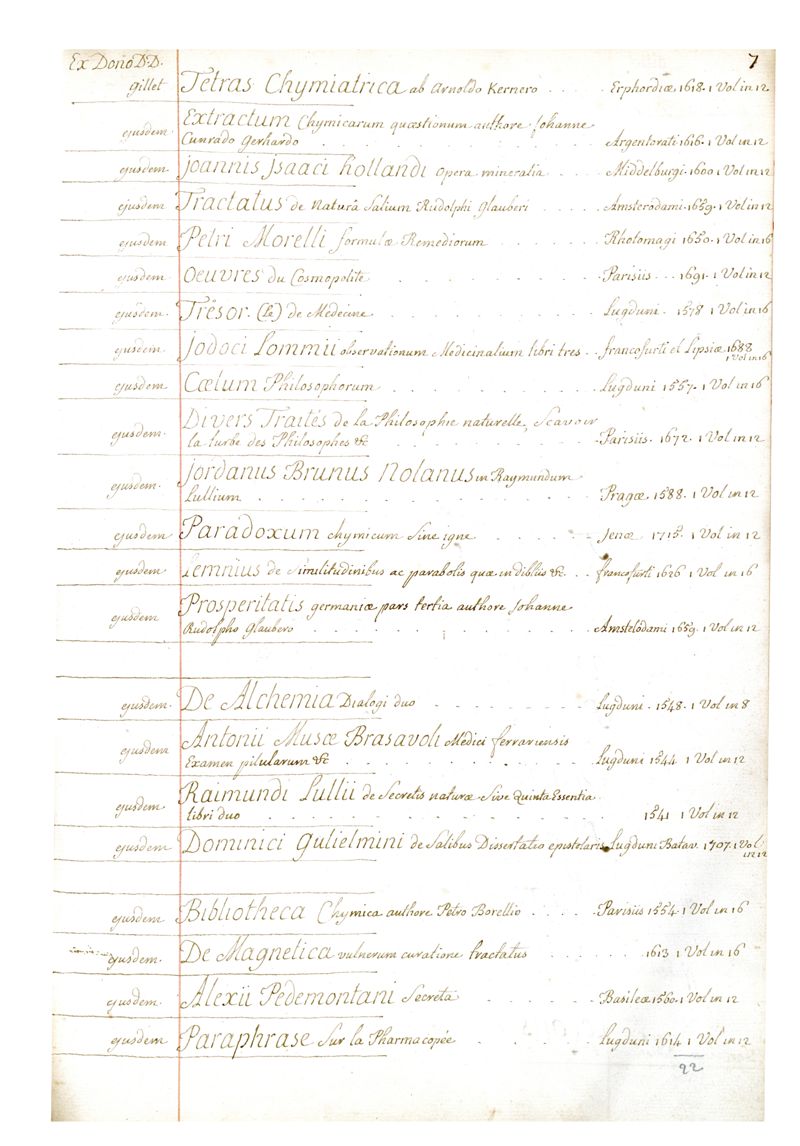 7
Ex Dono D.D.
Gillet Tetras Chymiatrica ab Arnoldo Kernero . . . . Erphordiæ 1618. 1 Vol in 12
ejusdem Extractum Chymicarum quæstionum authore Johanne
Cunrado Gerhardo . . . . . . . . . . Argentorati 1616. 1 Vol in 12
ejusdem Joannis Isaaci Hollandi opera mineralia . . . . Middelburgi. 1600 1 Vol in 12
ejusdem Tractatus de naturâ Salium Rudolphi Glauberi . . . . Amsterodami. 1659. 1 Vol in 12
ejusdem Petri Morelli formulæ Remediorum . . . . . . Rhotomagi 1650. 1 Vol in 16
ejusdem Oeuvres du Cosmopolite . . . . . . . . Parisiis . . . 1691. 1 Vol in 12
ejusdem. Trésor. (Le) de Medecine . . . . . . . . Lugduni. 1578 1 Vol in 16
ejusdem Jodoci Lommii observationum Medicinalium libri tres . . francofurti et Lipsiæ 1688
1 Vol in 16
ejusdem Cælum Philosophorum . . . . . . . . Lugduni 1557. 1 Vol in 16
ejusdem. Divers Traités de la Philosophie naturelle, Scavoir
la turbe des Philosophes &c . . . . . . . . Parisiis. 1672. 1 Vol in 12
ejusdem. Jordanus Brunus Nolanus in Raymundum
Lullium . . . . . . . . . . . . Pragæ 1588. 1 Vol in 12
ejusdem Paradoxum chymicum Sine igne . . . . Jenæ 1715. 1 Vol in 12
ejusdem Lemnius de Similitudinibus ac parabolis quæ in bibliis &c. . . francofurti 1626 1 Vol in 16
ejusdem Prosperitatis germaniæ pars tertia authore Johanne
Rudolpho Glaubero . . . . . . . . . . Amstelodami 1659. 1 Vol in 12
ejusdem. De Alchemia Dialogi duo . . . . . . Lugduni . 1548. 1 Vol in 8
ejusdem Antonii Musæ Brasavoli Medici ferrariensis
Examen pilularum &c . . . . . . . . Lugduni 1544 1 Vol in 12
ejusdem. Raimundi Lullii de Secretis naturæ Sive Quinta Essentia
libri duo . . . . . . . . . . . . 1541 1 Vol in 12
ejusdem Dominici Gulielmini de Salibus Dissertatio epistolaris Lugduni Batav. 1707. 1 Vol
in 12
ejusdem Bibliotheca Chymica authore Petro Borellio . . . . Parisiis 1554 1 Vol in 16
ejusdem. De Magnetica vulnerum curatione tractatus . . . . . . 1613 1 Vol in 16
ejusdem. Alexii Pedemontani Secreta . . . . . Basileæ 1560. 1 Vol in 12
ejusdem. Paraphrase Sur la Pharmacopée . . . . . Lugduni 1614 1 Vol in 12
22